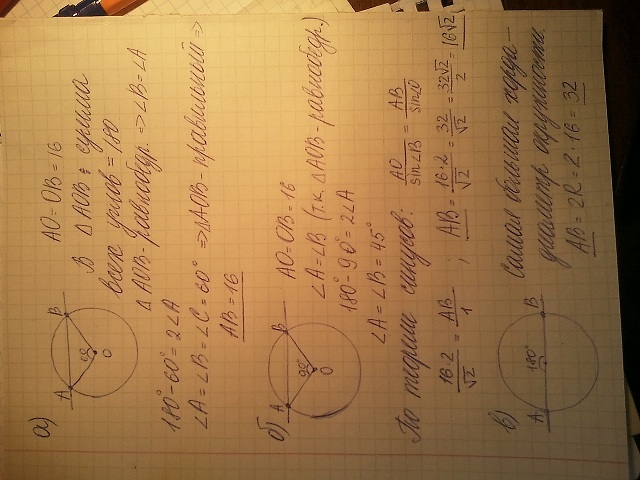 а)
A
B
60°
O
AO = OB = 16
В △ AOB: сумма
всех углов = 180
△ AOB - равнобедр. => ∠B = ∠A
180° - 60° = 2∠A
∠A = ∠B = ∠C = 60° => △AOB - правильный =>
AB = 16
б)
A
B
90°
O
AO = OB = 16
∠A = ∠B (т.к. △AOB - равнобедр.)
180° - 90° = 2∠A
∠A = ∠B = 45°
По теореме синусов: AO/sin∠B = AB/sin∠O
16·2/√2 = AB/1 ; AB = 16·2/√2 = 32/√2 = 32√2/2 = 16√2
в)
A
180°
B
Самая большая хорда -
диаметр окружности.
AB = 2R = 2·16 = 32